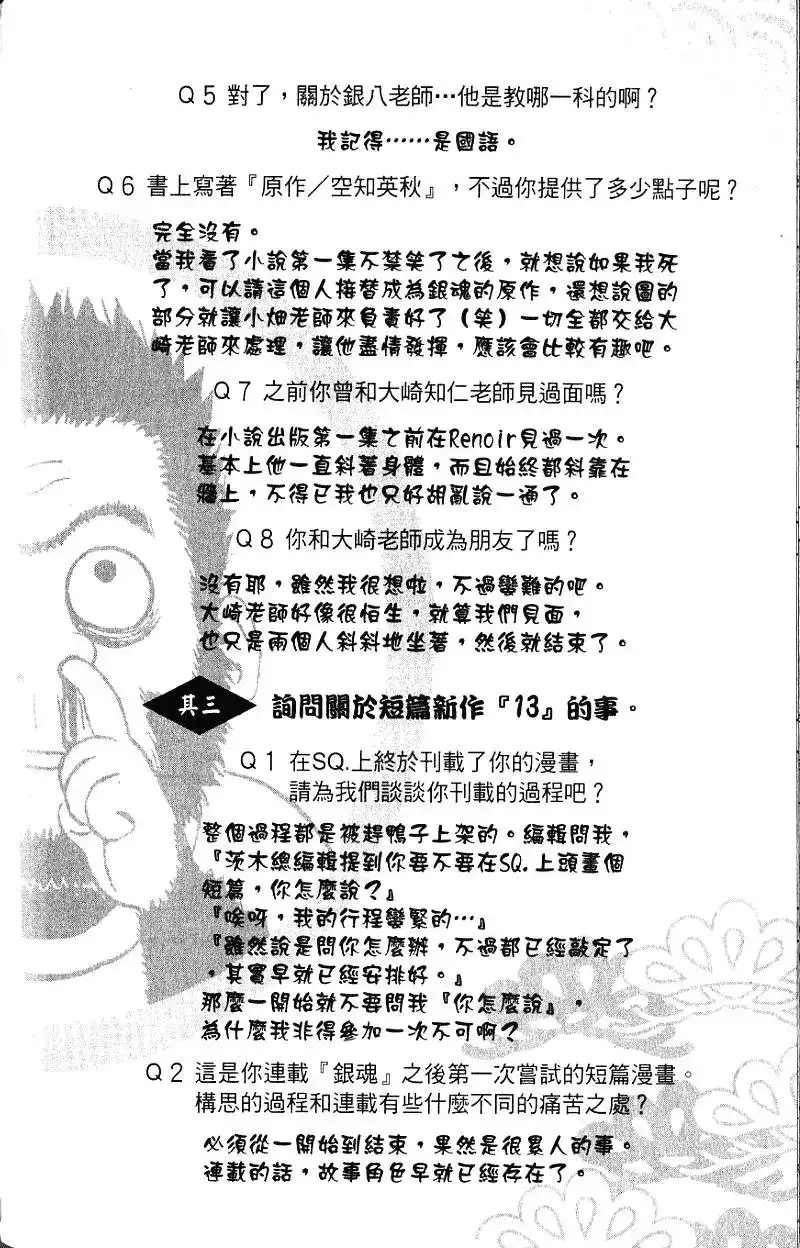 Q5 對了，關於銀八老師…他是教哪一科的啊？
我記得……是國語。
Q6 書上寫著『原作／空知英秋』，不過你提供了多少點子呢？
完全沒有。
當我看了小說第一集不禁笑了之後，就想說如果我死
了，可以請這個人接替成為銀魂的原作，還想說圖的
部分就讓小畑老師來負責好了（笑）一切全都交給大
崎老師來處理，讓他盡情發揮，應該會比較有趣吧。
Q7 之前你曾和大崎知仁老師見過面嗎？
在小說出版第一集之前在Renoir見過一次。
基本上他一直斜著身體，而且始終都斜靠在
牆上，不得已我也只好胡亂說一通了。
Q8 你和大崎老師成為朋友了嗎？
沒有耶，雖然我很想啦，不過蠻難的吧。
大崎老師好像很怕生，就算我們見面，
也只是兩個人斜斜地坐著，然後就結束了。
其三 詢問關於短篇新作『13』的事。
Q1 在SQ.上終於刊載了你的漫畫，
請為我們談談你刊載的過程吧？
整個過程都是被趕鴨子上架的。編輯問我，
『茨木總編輯提到你要不要在SQ.上頭畫個
短篇，你怎麼說？』
『唉呀，我的行程蠻緊的…』
『雖然說是問你怎麼辦，不過都已經敲定了
，其實早就已經安排好。』
那麼一開始就不要問我『你怎麼說』，
為什麼我非得參加一次不可啊？
Q2 這是你連載『銀魂』之後第一次嘗試的短篇漫畫。
構思的過程和連載有些什麼不同的痛苦之處？
必須從一開始到結束，果然是很累人的事。
連載的話，故事角色早就已經存在了。